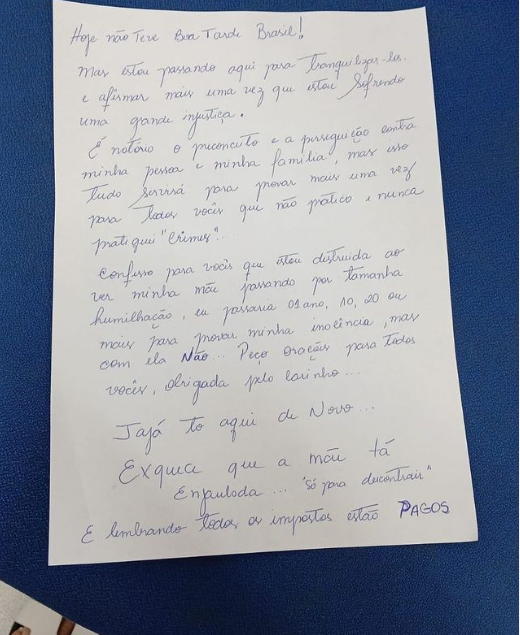 Hoje não Teve Boa Tarde Brasil!
Mas estou passando aqui para Tranquilizar-los.
e afirmar mais uma vez que estou Sofrendo
uma grande injustiça.
É notório o preconceito e a perseguição contra
minha pessoa e minha família, mas isso
tudo servirá para provar mais uma vez
para todos vocês que não pratico e nunca
pratiquei "Crimes"...
Confesso para vocês que estou distruida ao
ver minha mãe passando por tamanha
humilhação, eu passaria 01 ano, 10, 20 ou
mais para provar minha inocência, mas
com ela Não... Peço orações para todos
vocês, obrigada pelo carinho...
Jajá to aqui de Novo...
Exquece que a mãe tá
Enjaulada... "só para descontrair"
E lembrando todos os impostos estão PAGOS